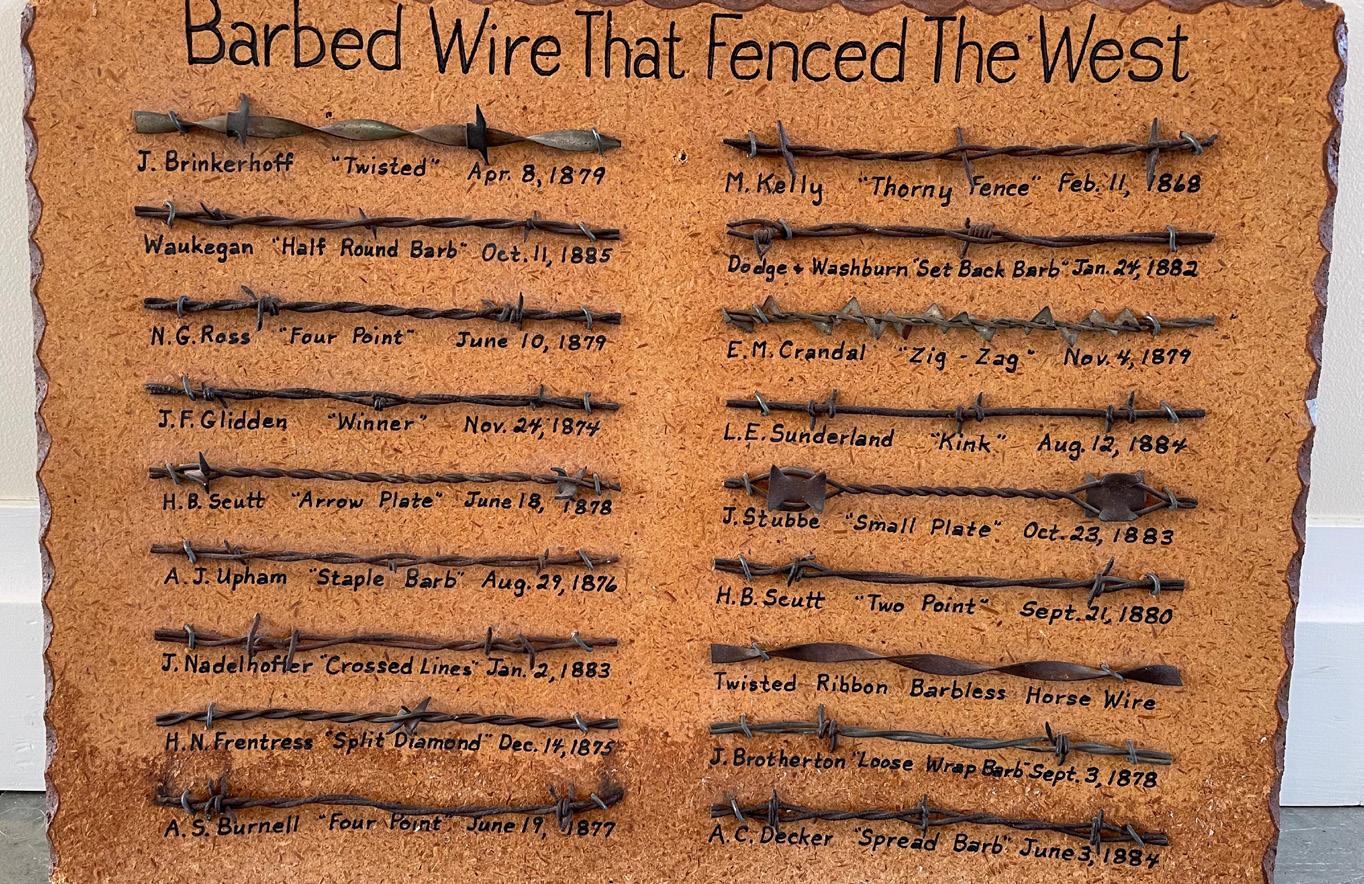 Barbed Wire That Fenced The West
J. Brinkerhoff "Twisted" Apr. 8, 1879
Waukegan "Half Round Barb" Oct. 11, 1885
N.G. Ross "Four Point" June 10, 1879
J.F. Glidden "Winner" Nov. 24, 1874
H.B. Scutt "Arrow Plate" June 18, 1878
A.J. Upham "Staple Barb" Aug. 29, 1876
J. Nadelhoffer "Crossed Lines" Jan. 2, 1883
H.N. Frentress "Split Diamond" Dec. 14, 1875
A.S. Burnell "Four Point" June 19, 1877
M. Kelly "Thorny Fence" Feb. 11, 1868
Dodge + Washburn "Set Back Barb" Jan. 24, 1882
E.M. Crandal "Zig - Zag" Nov. 4, 1879
L.E. Sunderland "Kink" Aug. 12, 1884
J. Stubbe "Small Plate" Oct. 23, 1883
H.B. Scutt "Two Point" Sept. 21, 1880
Twisted Ribbon Barbless Horse Wire
J. Brotherton "Loose Wrap Barb" Sept. 3, 1878
A.C. Decker "Spread Barb" June 3, 1884